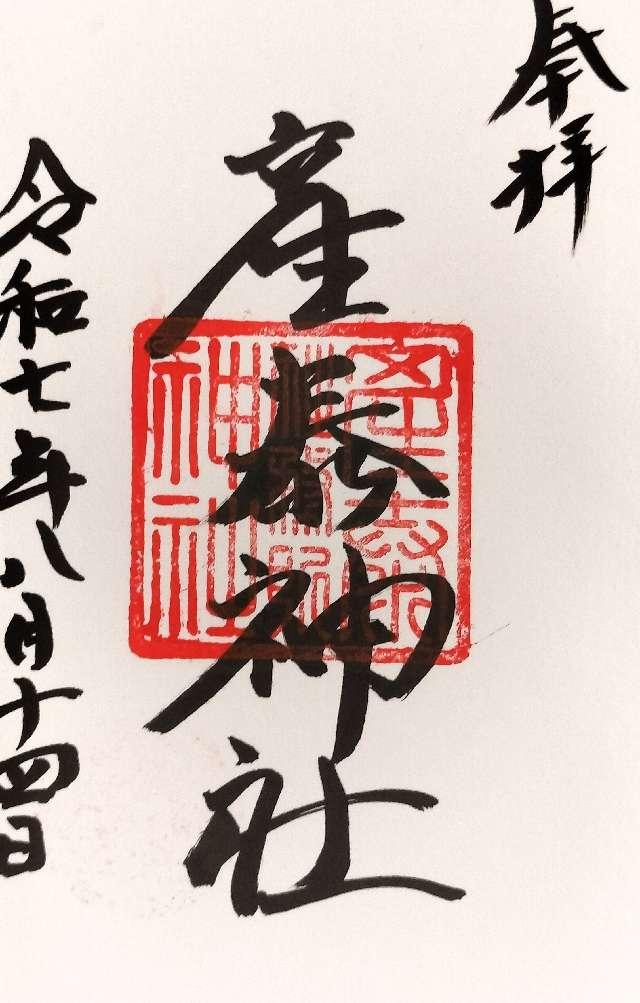 奉拝
産泰神社
令和七年八月十四日